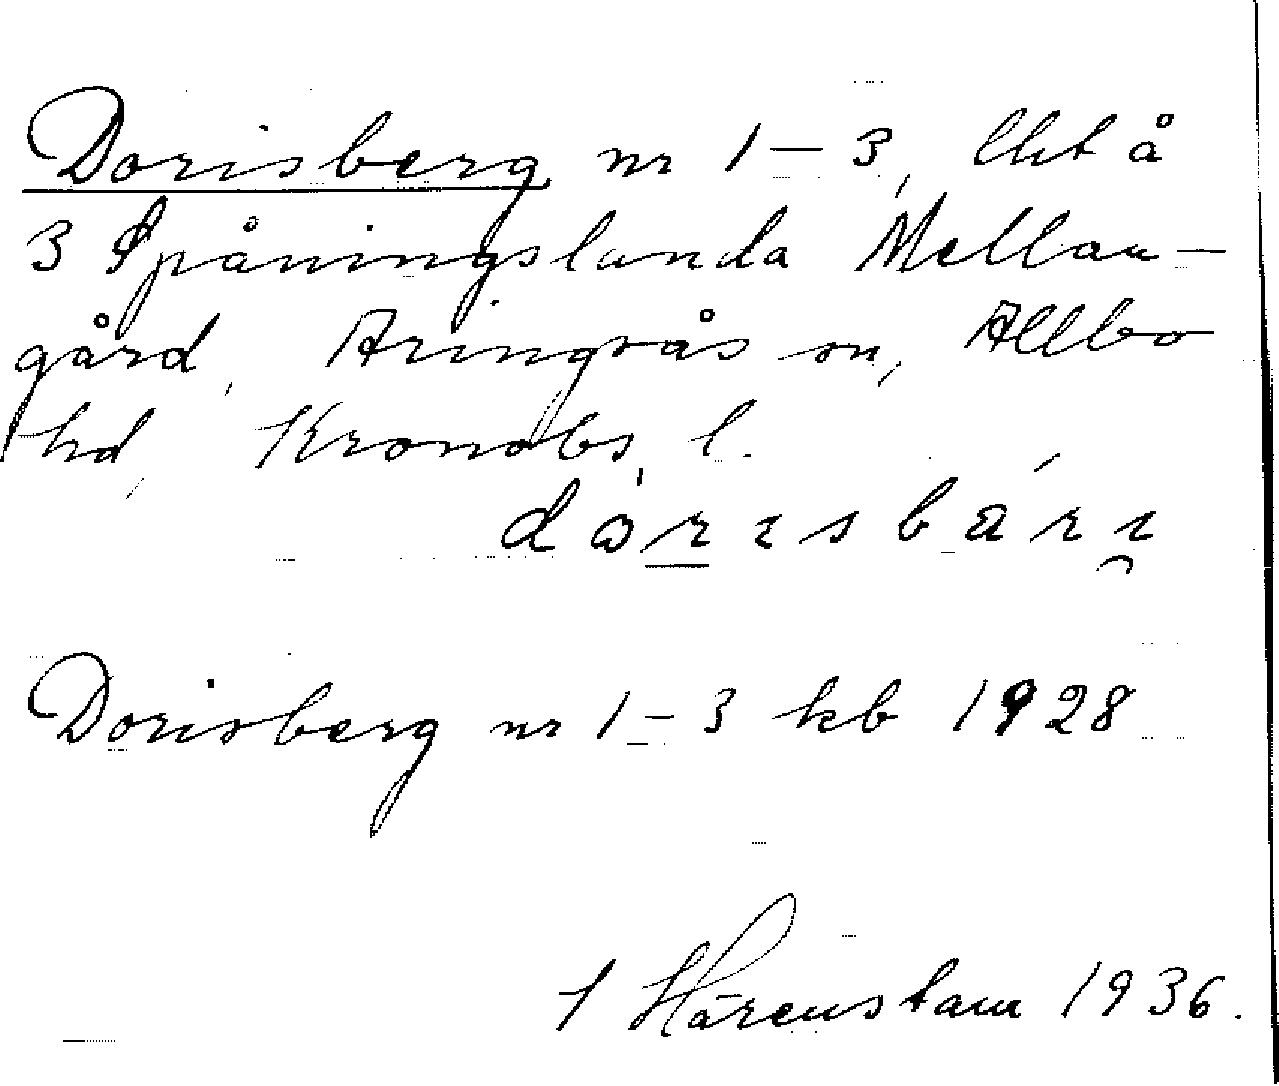 Dorisberg nr 1–3, lht å
3 Spåningslanda Mellan-
gård, Aringsås sn, Allbo
hd, Kronobs l.
dɷrɩsbärɩ
Dorisberg nr 1–3 kb 1928
I Härenstam 1936.